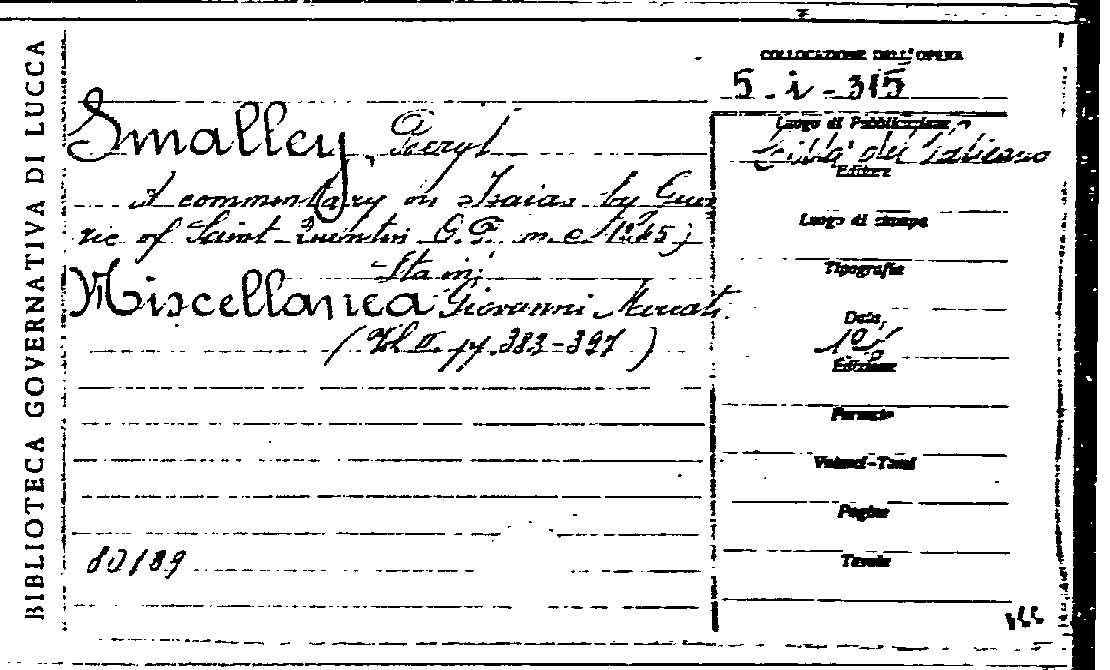 BIBLIOTECA GOVERNATIVA DI LUCCA
COLLOCAZIONE DELL'OPERA
5 - i - 315
Smalley, Beryl
A commentary on Isaias by Guer
ric of Saint-Quentin O.P. m. c. 1245)
Sta in:
Miscellanea Giovanni Mercati.
(Vol II. pp. 383-397)
80189
Luogo di Pubblicazione
Città del Vaticano
Editore
Luogo di stampa
Tipografia
Data
Edizione
Formato
Volumi-Tomi
Pagine
Tavole